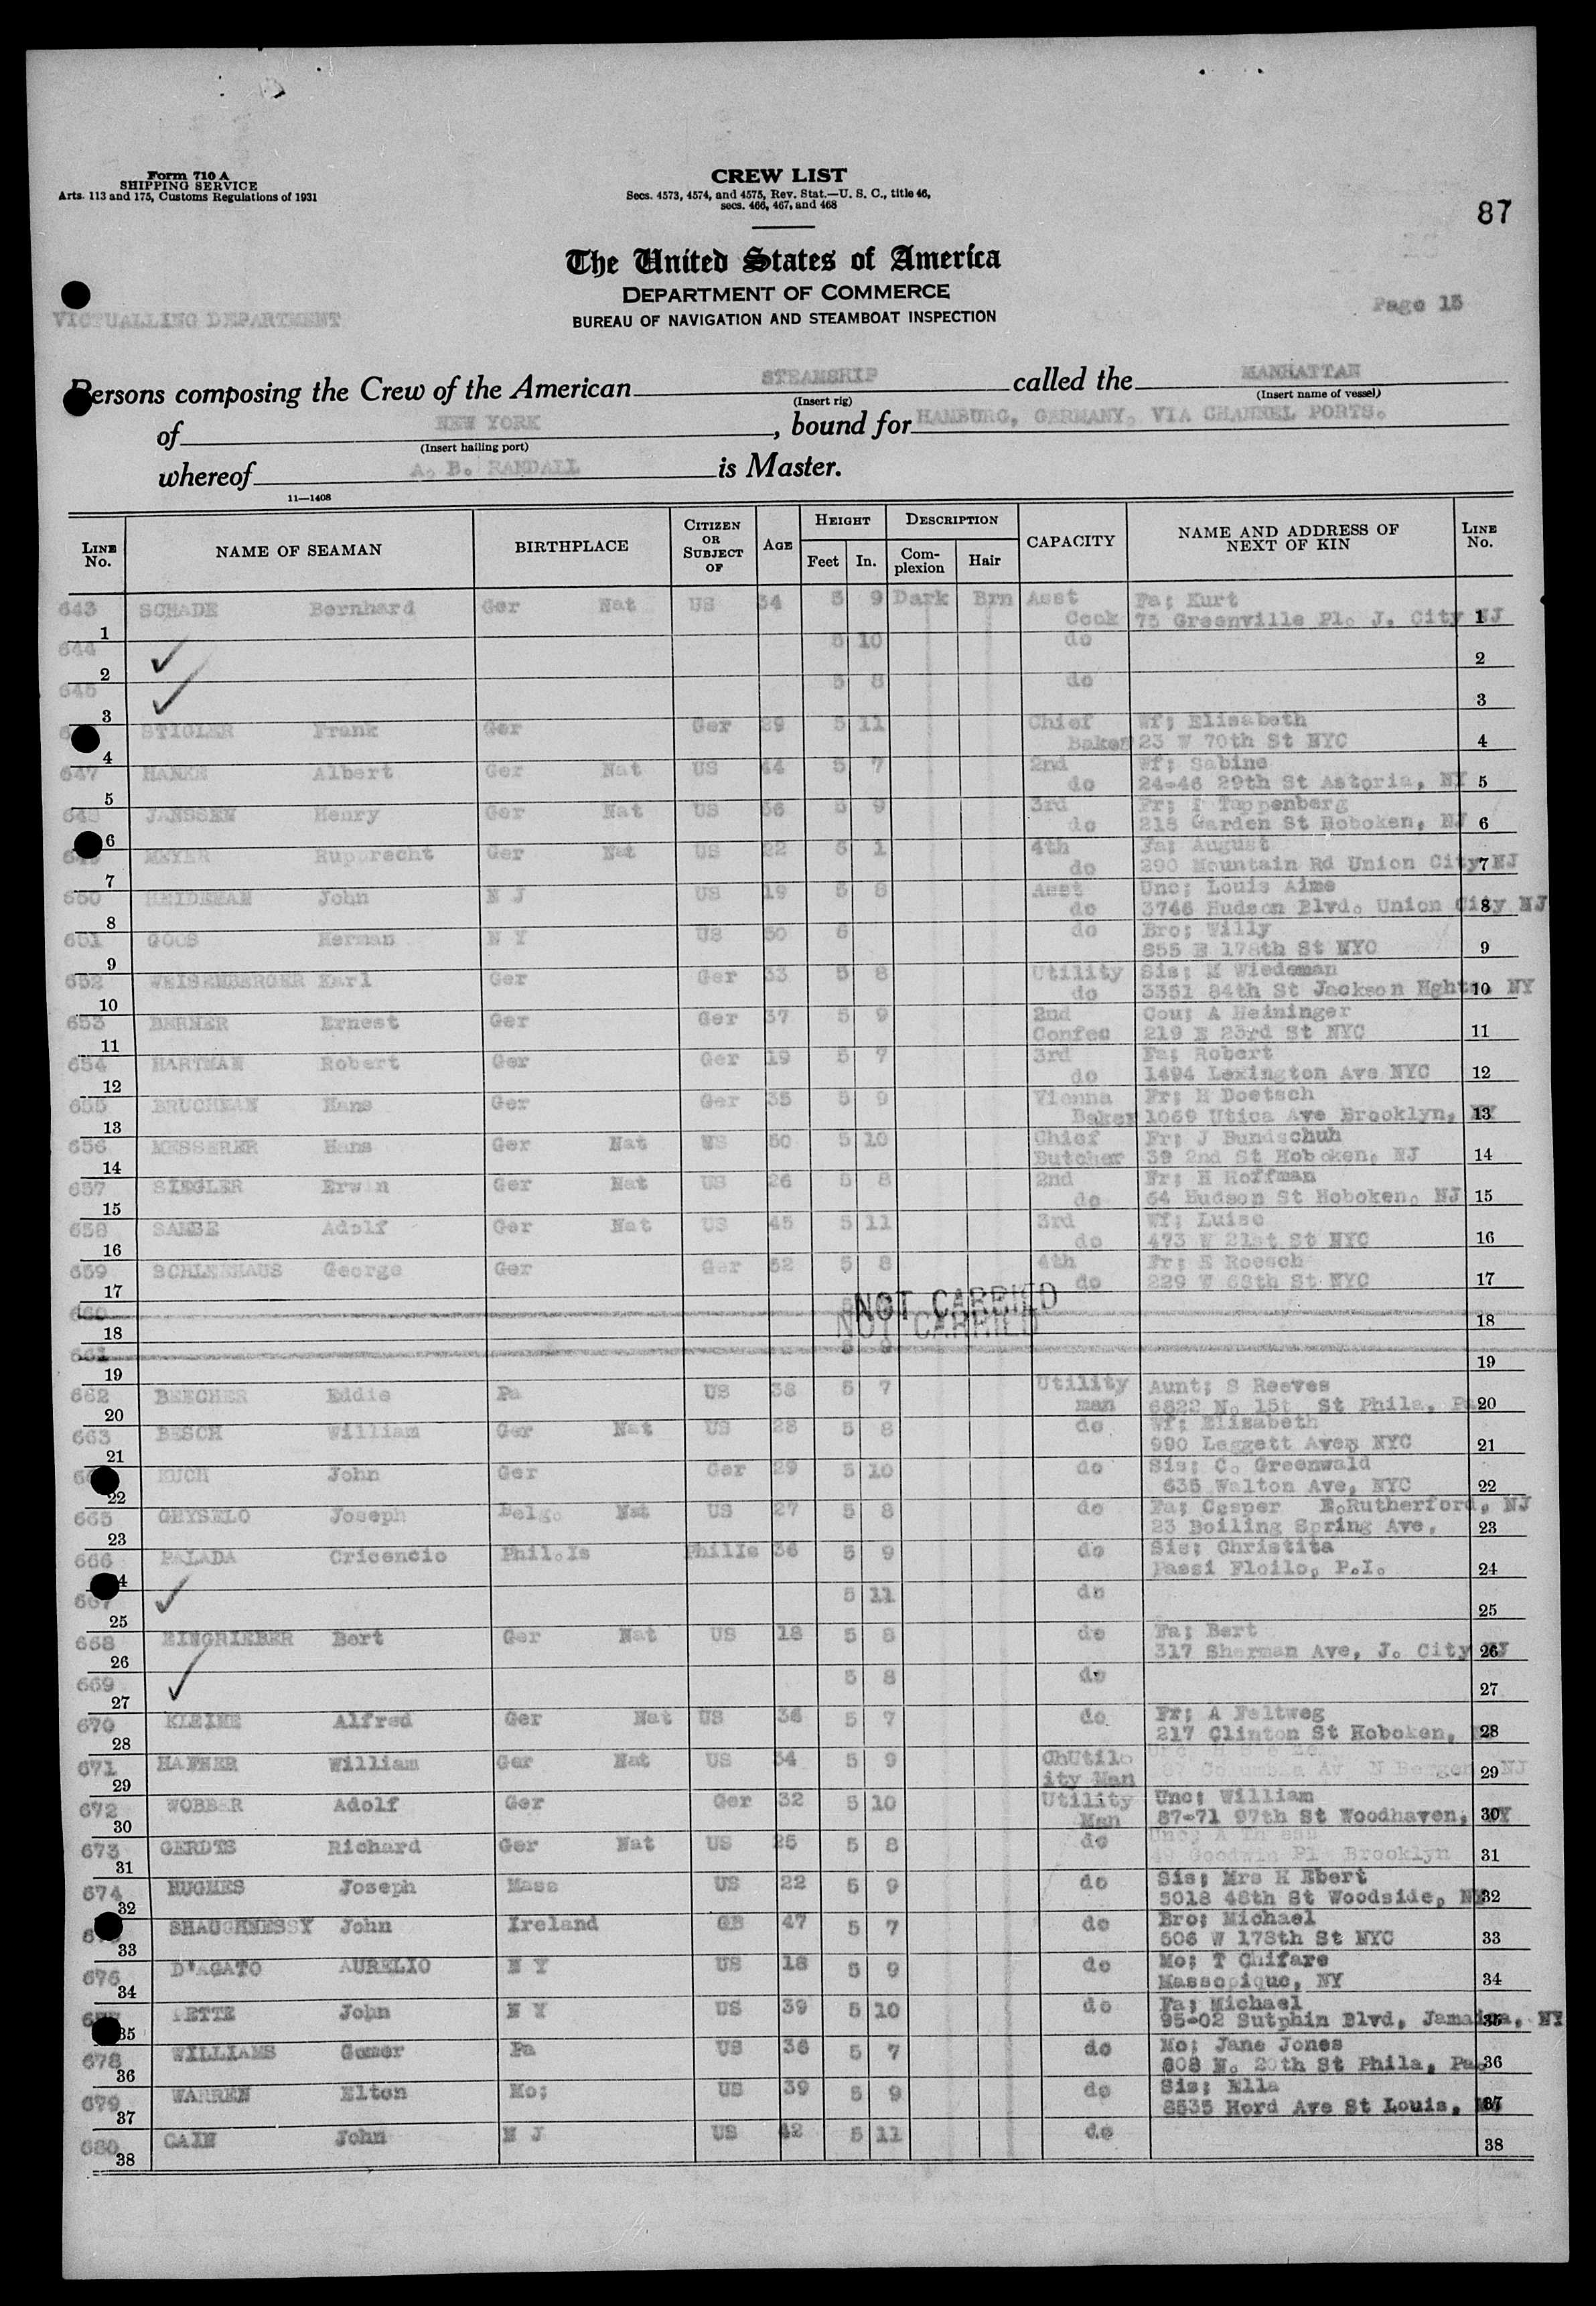 Form 710 A
SHIPPING SERVICE
Arts. 113 and 175, Customs Regulations of 1931
CREW LIST
Secs. 4573, 4574, and 4575, Rev. Stat.—U. S. C., title 46,
secs. 466, 467, and 468
87
The United States of America
DEPARTMENT OF COMMERCE
BUREAU OF NAVIGATION AND STEAMBOAT INSPECTION
VICTUALLING DEPARTMENT
Page 15
Persons composing the Crew of the American STEAMSHIP called the MANHATTAN
(Insert rig) (Insert name of vessel)
of NEW YORK, bound for HAMBURG, GERMANY, VIA CHANNEL PORTS.
(Insert hailing port)
whereof A. B. RANDALL is Master.
11—1408
LINE No. NAME OF SEAMAN BIRTHPLACE CITIZEN OR SUBJECT OF AGE HEIGHT Feet In. DESCRIPTION Complexion Hair CAPACITY NAME AND ADDRESS OF NEXT OF KIN LINE No.
643 SCHADE Bernhard Ger Nat US 34 5 9 Dark Brn Asst Fa; Kurt
1 Cook 75 Greenville Pl. J. City NJ 1
644 5 10 do
2 2
645 5 8 do
3 3
STIGLER Frank Ger Ger 29 5 11 Chief Wf; Elisabeth
4 Baker 23 W 70th St NYC 4
647 HANKE Albert Ger Nat US 44 5 7 2nd Wf; Sabine
5 do 24-46 29th St Astoria, NY 5
JANSSEN Henry Ger Nat US 36 5 9 3rd Fr; Tappenberg
6 do 218 Garden St Hoboken, NJ 6
MEYER Rupprecht Ger Nat US 22 5 1 4th Fa; August
7 do 290 Mountain Rd Union City NJ 7
650 HEIDEMAN John N J US 19 5 8 Asst Unc; Louis Aime
8 do 3746 Hudson Blvd. Union City NJ 8
651 GOOS Herman N Y US 50 6 do Bro; Willy
9 855 E 178th St NYC 9
652 WEISEMBERGER Karl Ger Ger 33 5 8 Utility Sis; M Wiedeman
10 do 3351 84th St Jackson Hghts, NY 10
653 BERNER Ernest Ger Ger 37 5 9 2nd Cou; A Heininger
11 Confec 219 E 23rd St NYC 11
654 HARTMAN Robert Ger Ger 19 5 7 3rd Fa; Robert
12 do 1494 Lexington Ave NYC 12
655 BRUCHMAN Hans Ger Ger 35 5 9 Vienna Fr; H Doetsch
13 Baker 1069 Utica Ave Brooklyn, NY 13
656 MESSERER Hans Ger Nat US 50 5 10 Chief Fr; J Bundschuh
14 Butcher 39 2nd St Hoboken, NJ 14
657 SIEGLER Erwin Ger Nat US 26 5 8 2nd Fr; H Hoffman
15 do 64 Hudson St Hoboken. NJ 15
658 SAMBE Adolf Ger Nat US 45 5 11 3rd Wf; Luise
16 do 473 W 21st St NYC 16
659 SCHLEEHAUS George Ger Ger 52 5 8 4th Fr; E Roesch
17 do 229 W 68th St NYC 17
660 NOT CARRIED
18 NOT CARRIED 18
661
19 19
662 BEECHER Eddie Pa US 38 5 7 Utility Aunt; S Reeves
20 man 6822 N. 15t St Phila. Pa 20
663 BESCH William Ger Nat US 28 5 8 do Wf; Elizabeth
21 990 Leggett Ave, NYC 21
John Ger Ger 29 5 10 do Sis; C. Greenwald
22 635 Walton Ave, NYC 22
665 GHYSELO Joseph Belg. Nat US 27 5 8 do Fa; Casper E.Rutherford, NJ
23 23 Boiling Spring Ave, 23
666 PALADA Cricencio Phil.Is PhilIs 36 5 9 do Sis; Christita
Passi Floilo, P.I. 24
667 5 11 do
25 25
668 EINGRIEBER Bert Ger Nat US 18 5 8 do Fa; Bert
26 317 Sherman Ave, J. City NJ 26
669 5 8 do
27 27
670 KLEINE Alfred Ger Nat US 36 5 7 do Fr; A Feltweg
28 217 Clinton St Hoboken, 28
671 HAFNER William Ger Nat US 34 5 9 ChUtil.
29 ity Man Columbia Av N Bergen NJ 29
672 WOBBER Adolf Ger Ger 32 5 10 Utility Unc; William
30 Man 87-71 97th St Woodhaven, NY 30
673 GERDTS Richard Ger Nat US 25 5 8 do
31 49 Goodwin Pl Brooklyn 31
674 HUGHES Joseph Mass US 22 5 9 do Sis; Mrs H Ebert
32 5018 48th St Woodside, NY 32
SHAUGHNESSY John Ireland GB 47 5 7 do Bro; Michael
33 506 W 178th St NYC 33
676 D'AGATO AURELIO N Y US 18 5 9 do Mo; T Chifare
34 Massopique, NY 34
John N Y US 39 5 10 do Fa; Michael
35 95-02 Sutphin Blvd, Jamaica, NY 35
678 WILLIAMS Gomer Pa US 36 5 7 do Mo; Jane Jones
36 808 N. 20th St Phila, Pa. 36
679 WARREN Elton Mo; US 39 5 9 do Sis; Ella
37 8535 Hord Ave St Louis, Mo 37
680 CAIN John N J US 42 5 11 do
38 38